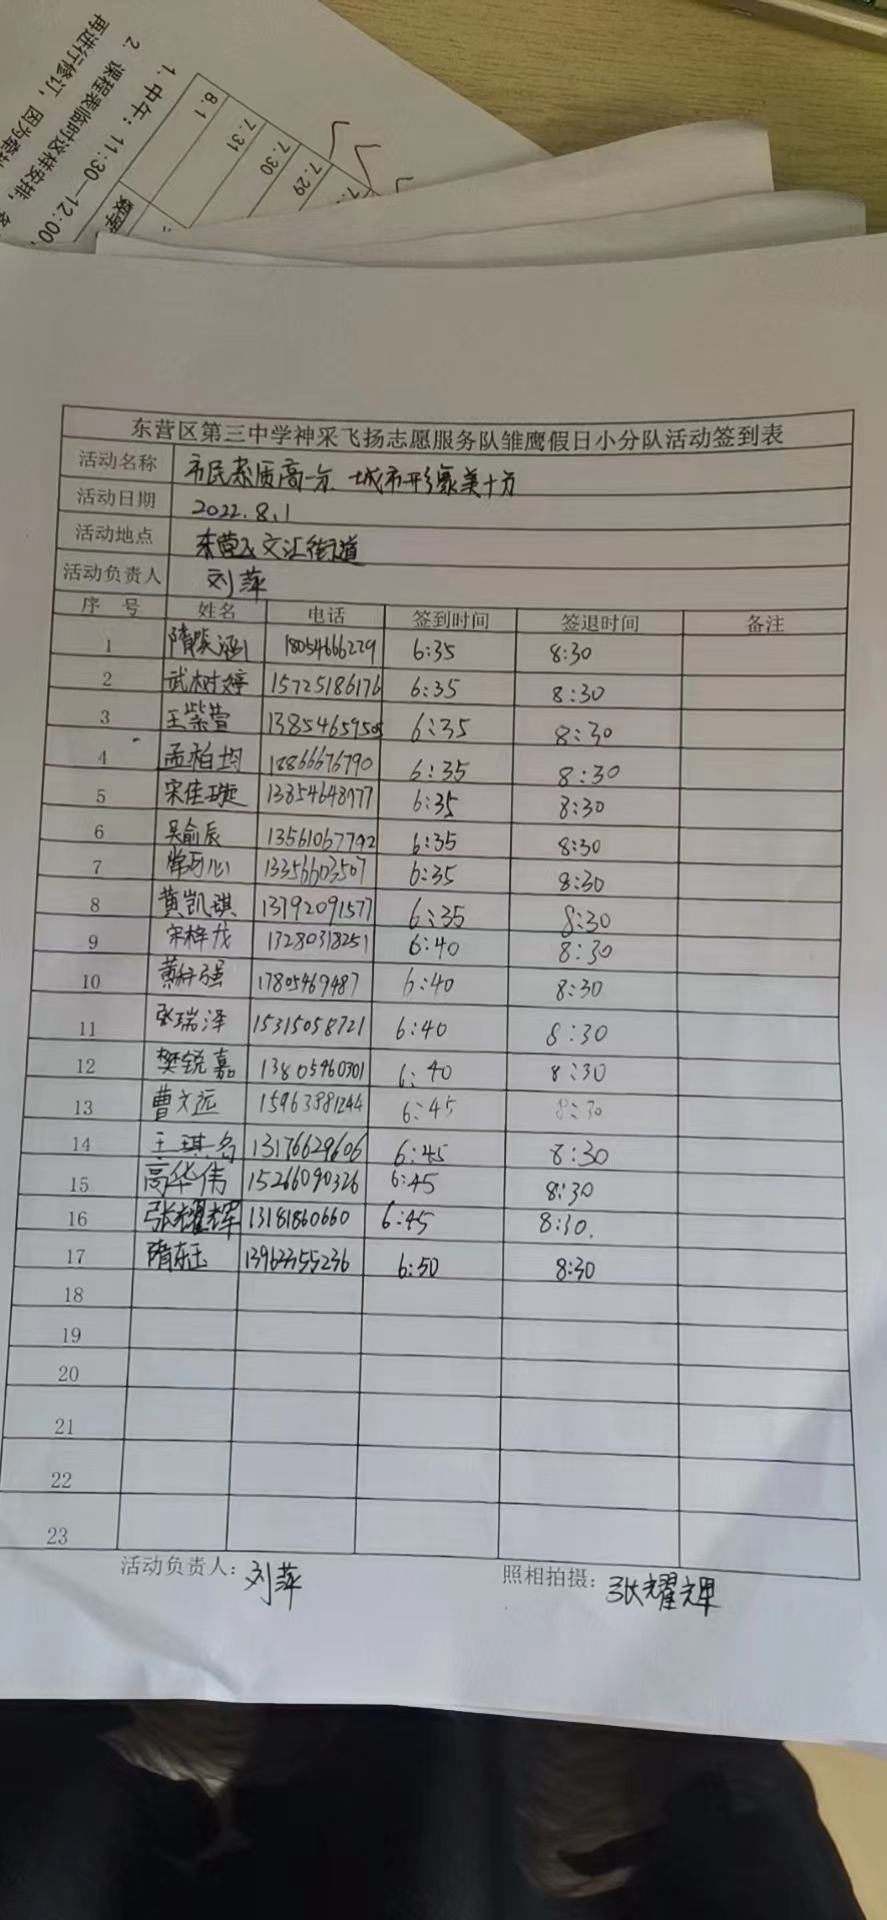 再进行修订，因为牵扯
2. 课程表临时这样安排，
1. 中午：11:30—12:00，
8.1 7.31 7.30 7.29
东营区第三中学神采飞扬志愿服务队雏鹰假日小分队活动签到表
活动名称 市民素质高一分 城市形象美十分
活动日期 2022.8.1
活动地点 东营区文汇街道
活动负责人 刘萍
序号 姓名 电话 签到时间 签退时间 备注
1 隋 涵 18054666229 6:35 8:30
2 武树婷 15725186176 6:35 8:30
3 王紫萱 138546595 6:35 8:30
4 孟柏均 18866676790 6:35 8:30
5 宋佳璇 6:35 8:30
6 吴俞辰 13561067792 6:35 8:30
7 常可心 13356603507 6:35 8:30
8 黄凯琪 13792091577 6:35 8:30
9 宋梓茂 13280318251 6:40 8:30
10 黄 强 17805469487 6:40 8:30
11 张瑞泽 15315058721 6:40 8:30
12 樊锐嘉 13805460301 6:40 8:30
13 曹文远 15963881244 6:45 8:30
14 王琪名 13176629606 6:45 8:30
15 高华伟 15266090326 6:45 8:30
16 张耀辉 13181860660 6:45 8:30.
17 隋东玉 13962355236 6:50 8:30
18
19
20
21
22
23
活动负责人：刘萍 照相拍摄：张耀辉